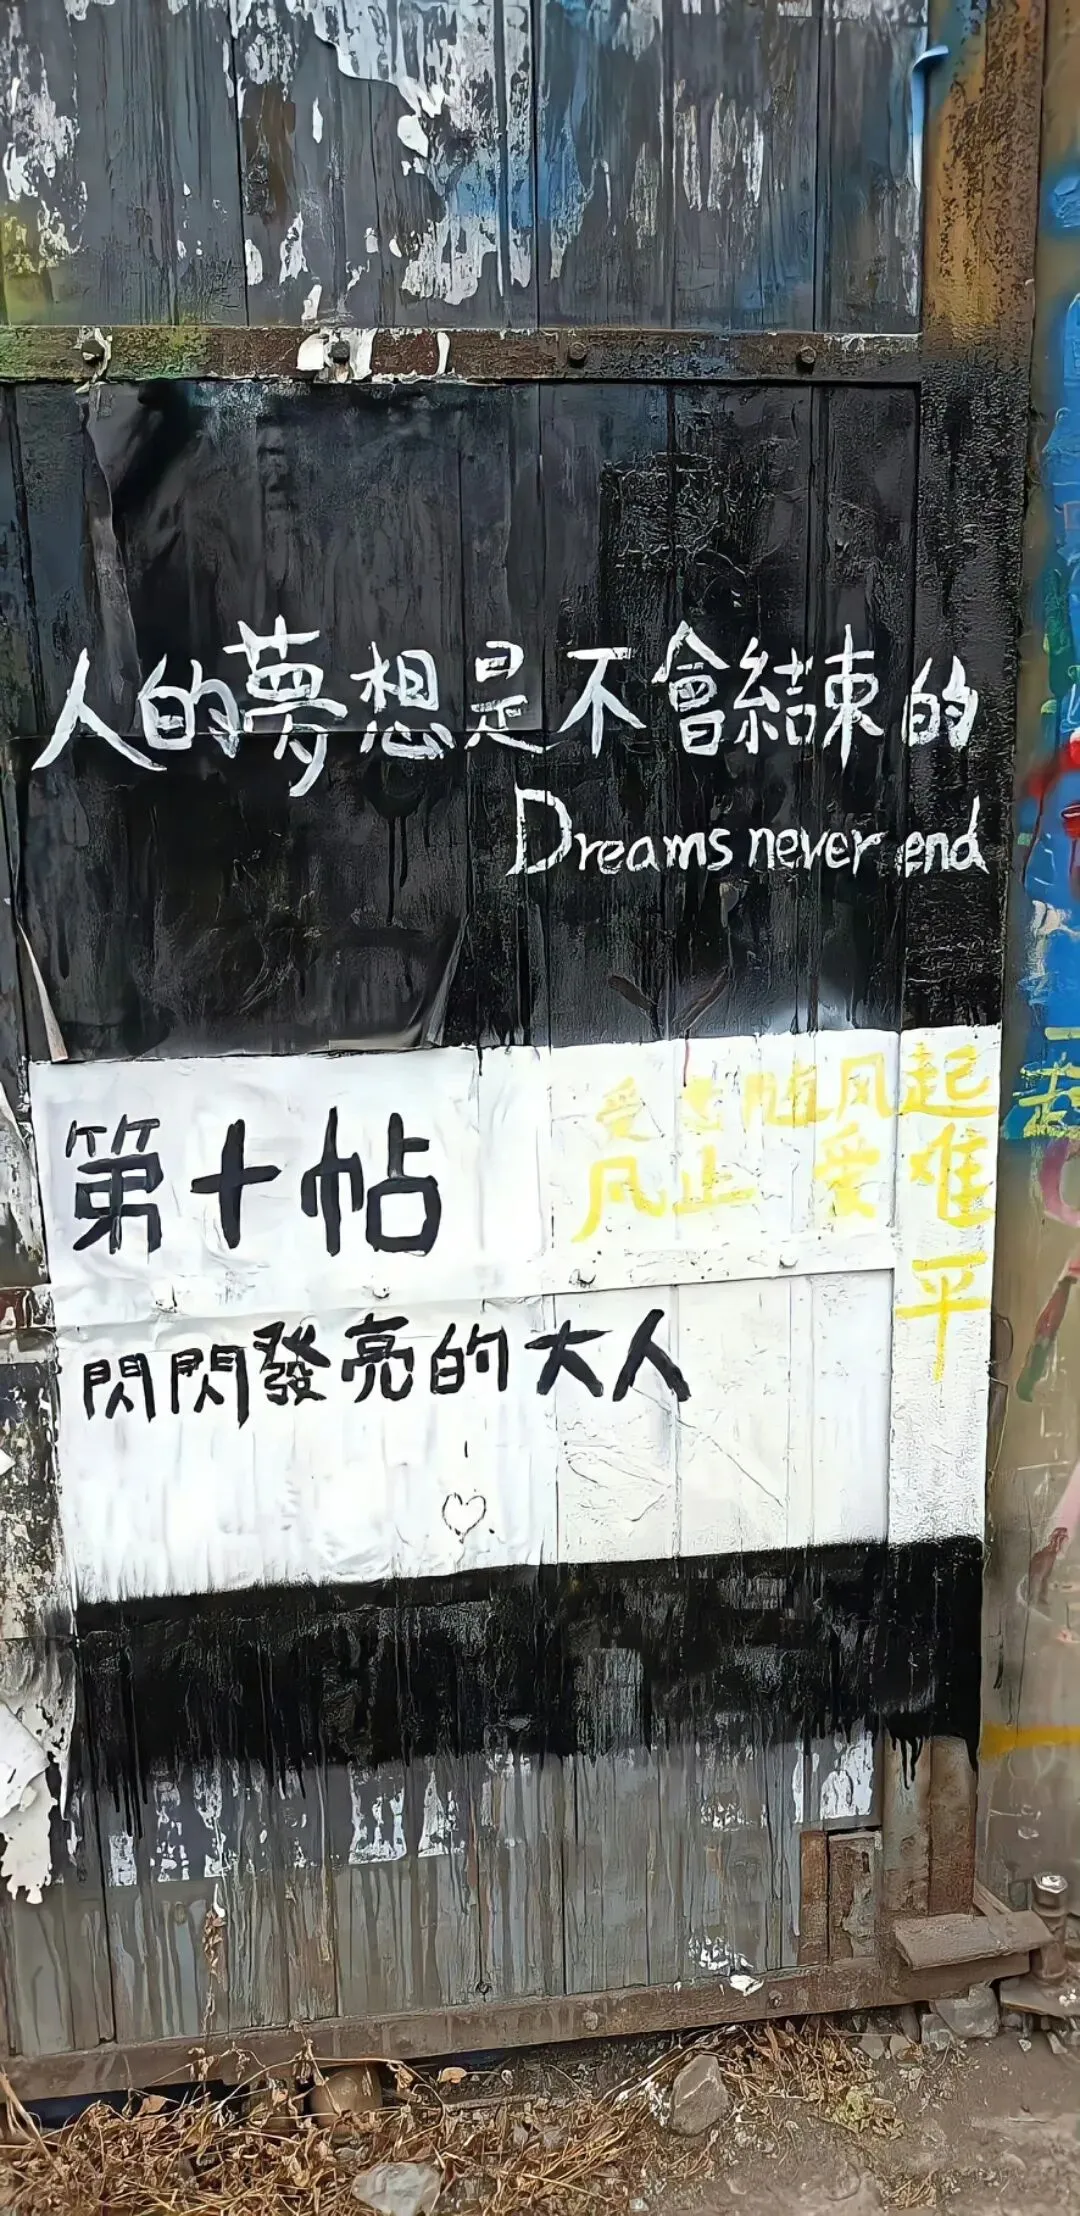 人的夢想是不會結束的
Dreams never end
第十帖
受 随风起
风止 受难
平
閃閃發亮的大人